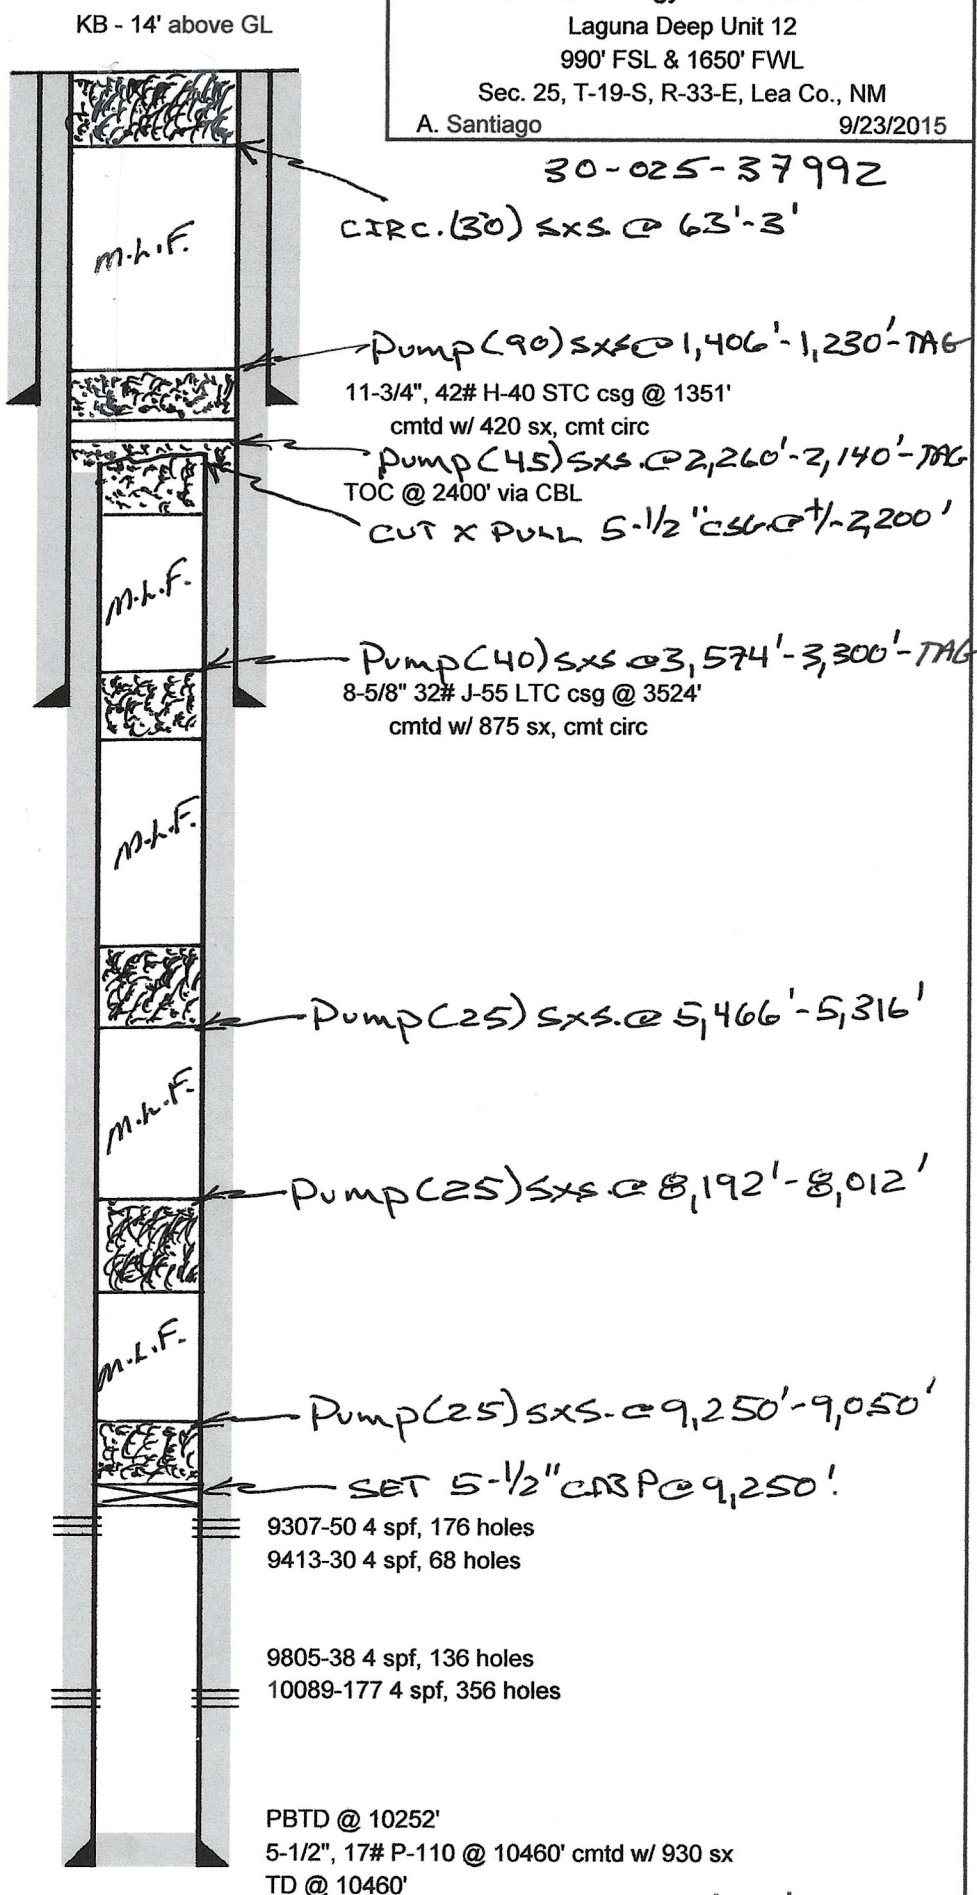 KB - 14' above GL
Laguna Deep Unit 12
990' FSL & 1650' FWL
Sec. 25, T-19-S, R-33-E, Lea Co., NM
A. Santiago 9/23/2015
30-025-37992
CIRC.(30) SXS. @ 63'-3'
M.L.F.
Pump (90) SXS @ 1,406'-1,230'-TAG
11-3/4", 42# H-40 STC csg @ 1351'
cmtd w/ 420 sx, cmt circ
Pump (45) SXS. @ 2,260'-2,140'-TAG
TOC @ 2400' via CBL
CUT X PULL 5-1/2" CSG. @ +/-2,200'
M.L.F.
Pump (40) SXS @ 3,574'-3,300'-TAG
8-5/8" 32# J-55 LTC csg @ 3524'
cmtd w/ 875 sx, cmt circ
M.L.F.
Pump (25) SXS. @ 5,466'-5,316'
M.L.F.
Pump (25) SXS. @ 8,192'-8,012'
M.L.F.
Pump (25) SXS. @ 9,250'-9,050'
SET 5-1/2" CIBP @ 9,250'.
9307-50 4 spf, 176 holes
9413-30 4 spf, 68 holes
9805-38 4 spf, 136 holes
10089-177 4 spf, 356 holes
PBTD @ 10252'
5-1/2", 17# P-110 @ 10460' cmtd w/ 930 sx
TD @ 10460'